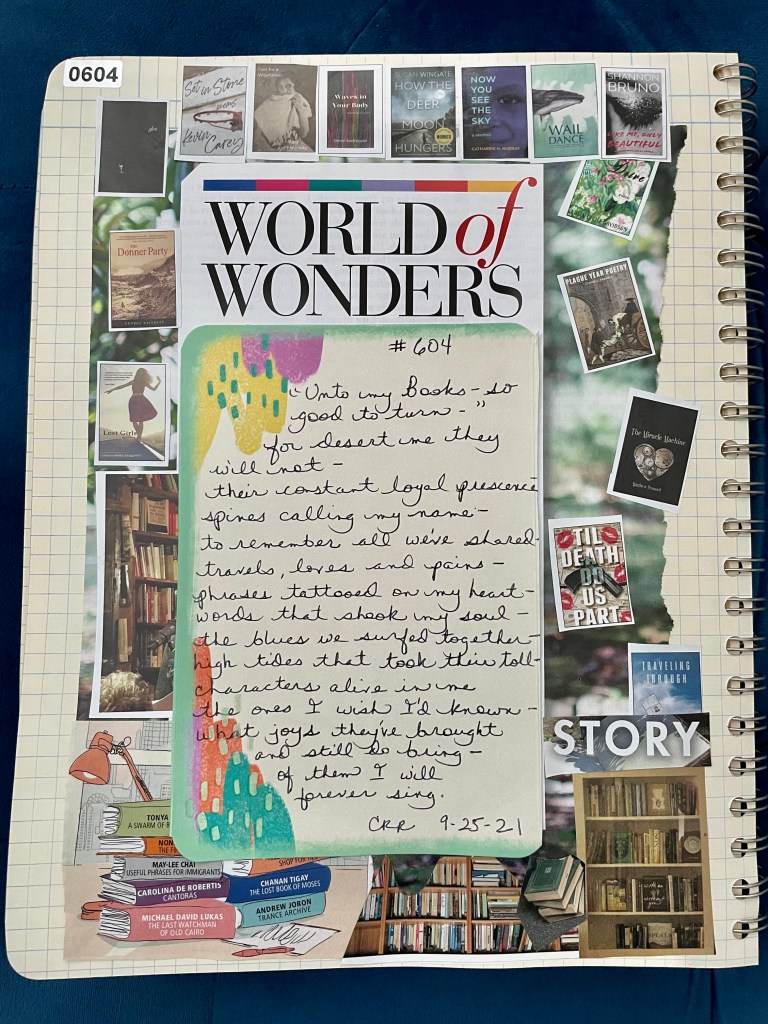 0604
Set in Stone
poems
Kevin Carey
Waves in
Your Body
SUSAN WINGATE
HOW THE
DEER
MOON
HUNGERS
NOW
YOU
SEE
THE
SKY
A MEMOIR
CATHARINE H. MURRAY
WAIL
DANCE
SHANNON
BRUNO
LIKE ME, ONLY
BEAUTIFUL
WORLD of
WONDERS
Donner Party
PLAGUE YEAR POETRY
Lost Girls
The Miracle Machine
TIL
DEATH
DO
US
PART
TRAVELING
THROUGH
STORY
# 604
"Unto my Books - so
good to turn - "
for desert me they
will not -
their constant loyal prescence
spines calling my name -
to remember all we've shared -
travels, loves and pains -
phrases tattooed on my heart -
words that shook my soul -
the blues we surfed together -
high tides that took their toll -
characters alive in me
the ones I wish I'd known -
what joys they've brought
and still do bring -
of them I will
forever sing.
CRR 9-25-21
TONYA
A SWARM OF B
NON
THE F
MAY-LEE CHAI
USEFUL PHRASES FOR IMMIGRANTS
SHOP FOR
CAROLINA DE ROBERTIS
CANTORAS
CHANAN TIGAY
THE LOST BOOK OF MOSES
MICHAEL DAVID LUKAS
THE LAST WATCHMAN
OF OLD CAIRO
ANDREW JORON
TRANCE ARCHIVE